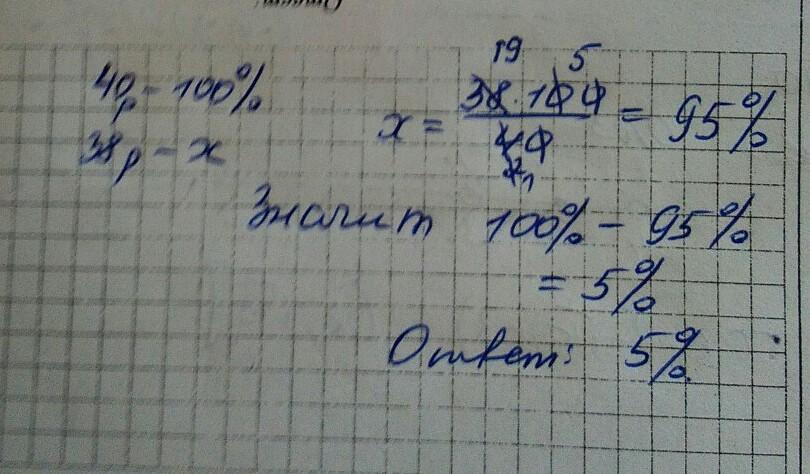 40р - 100%
38р - x
x = 38·100 / 40 = 95%
19 5
2 1
Значит 100% - 95%
= 5%
Ответ: 5%